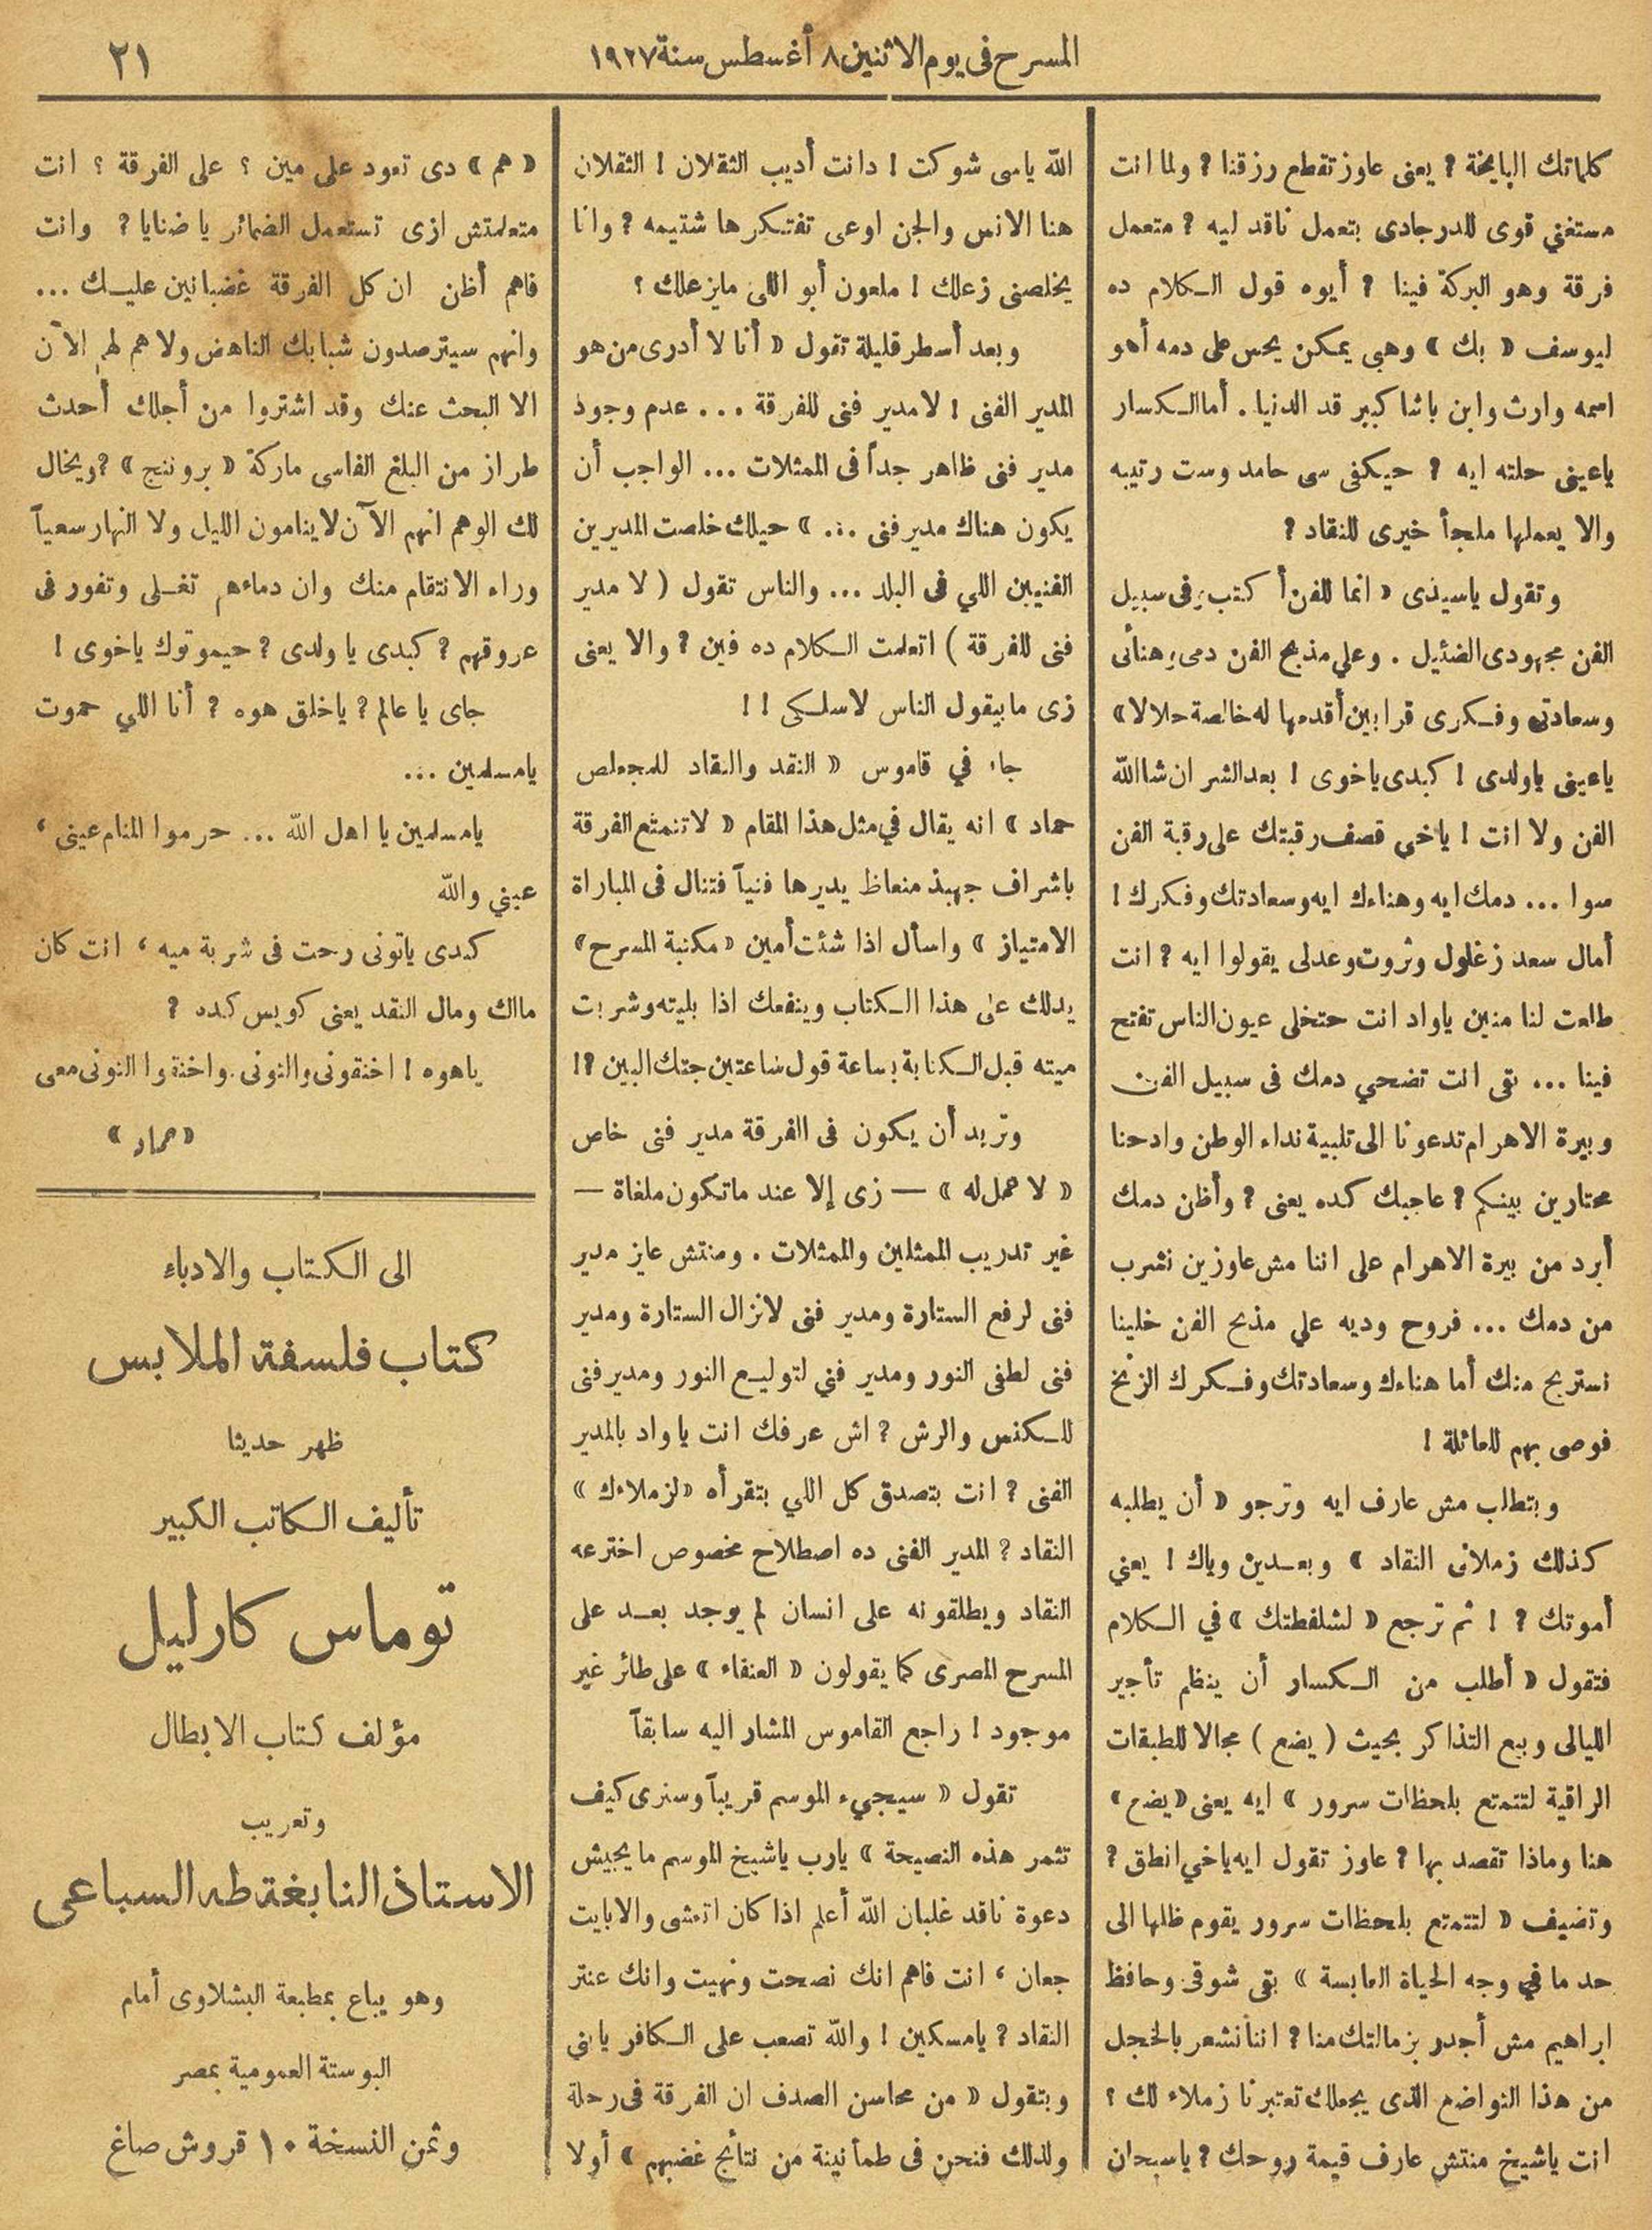 المسرح فى يوم الاثنين ٨ أغسطس سنة ١٩٢٧
٢١
كلماتك البايخة ? يعنى عاوز تقطع رزقنا ? ولما انت
مستغني قوى للدرجادى بتعمل ناقد ليه ? متعمل
فرقة وهو البركة فينا ? أيوه قول الكلام ده
ليوسف « بك » وهى يمكن يحس على دمه أهو
اسمه وارث وابن باشا كبير قد الدنيا . أما الكسار
ياعينى حلته ايه ? حيكفى سى حامد وست رتيبه
والا يعملها ملجأ خيرى للنقاد ?
وتقول ياسيدى « انما للفن أكتب وفى سبيل
الفن مجهودى الضئيل . وعلي مذبح الفن دمى وهنائى
وسعادتى وفكرى قرابين أقدمها له خالصة حلالا »
ياعينى ياولدى ! كبدى ياخوى ! بعد الشر ان شا الله
الفن ولا انت ! ياخى قصف رقبتك على رقبة الفن
سوا ... دمك ايه وهناءك ايه وسعادتك وفكرك !
أمال سعد زغلول وثروت وعدلى يقولوا ايه ? انت
طلعت لنا منين ياواد انت حتخلى عيون الناس تفتح
فينا ... بقى انت تضحي دمك فى سبيل الفن
وبيرة الاهرام تدعونا الى تلبية نداء الوطن وادحنا
محتارين بينكم ? عاجبك كده يعنى ? وأظن دمك
أبرد من بيرة الاهرام على اننا مش عاوزين نشرب
من دمك ... فروح وديه علي مذبح الفن خلينا
نستريح منك أما هناءك وسعادتك وفكرك الزنخ
فوصى بهم للعائلة !
وبتطلب مش عارف ايه وترجو « أن يطلبه
كذلك زملائى النقاد » وبعدين وياك ! يعني
أموتك ? ! ثم ترجع « لشلفطتك » في الكلام
فتقول « أطلب من الكسار أن ينظم تأجير
الليالى وبيع التذاكر بحيث ( يضع ) مجالا للطبقات
الراقية لتتمتع بلحظات سرور » ايه يعنى « يضع »
هنا وماذا تقصد بها ? عاوز تقول ايه ياخي انطق ?
وتضيف « لتتمتع بلحظات سرور يقوم ظلها الى
حد ما في وجه الحياة العابسة » بقى شوقى وحافظ
ابراهيم مش أجدر بزمالتك منا ? اننا نشعر بالخجل
من هذا التواضع الذى يجعلك تعتبرنا زملاء لك ؟
انت ياشيخ منتش عارف قيمة روحك ? ياسبحان
الله ياسى شوكت ! دانت أديب الثقلان ! الثقلان
هنا الانس والجن اوعى تفتكرها شتيمه ? وانا
يخلصنى زعلك ! ملعون أبو اللى مايزعلك ؟
وبعد أسطر قليلة تقول « أنا لا أدرى من هو
المدير الفنى ! لا مدير فنى للفرقة ... عدم وجود
مدير فنى ظاهر جداً فى الممثلات ... الواجب أن
يكون هناك مدير فنى ... » حيلك خلصت المديرين
الفنيين اللي فى البلد ... والناس تقول ( لا مدير
فنى للفرقة ) اتعلمت الكلام ده فين ? والا يعنى
زى مابيقول الناس لاسلكى ! !
جاء في قاموس « النقد والنقاد للمجعلص
حماد » انه يقال في مثل هذا المقام « لا تتمتع الفرقة
باشراف جهبذ متعاظ يديرها فنياً فتنال فى المباراة
الامتياز » واسأل اذا شئت أمين « مكتبة المسرح »
يدلك على هذا الكتاب وينفعك اذا بليته وشربت
ميته قبل الكتابة بساعة قول ساعتين جتك البين ?!
وتريد أن يكون فى الفرقة مدير فنى خاص
« لا عمل له » — زى إلا عند ماتكون ملغاة —
غير تدريب الممثلين والممثلات . ومنتش عايز مدير
فنى لرفع الستارة ومدير فنى لانزال الستارة ومدير
فنى لطفى النور ومدير فني لتوليع النور ومدير فنى
للكنس والرش ? اش عرفك انت ياواد بالمدير
الفنى ? انت بتصدق كل اللي بتقرأه « لزملاءك »
النقاد ? المدير الفنى ده اصطلاح مخصوص اخترعه
النقاد ويطلقونه على انسان لم يوجد بعد على
المسرح المصرى كما يقولون « العنقاء » على طائر غير
موجود ! راجع القاموس المشار اليه سابقاً
تقول « سيجيء الموسم قريباً وسنرى كيف
تثمر هذه النصيحة » يارب ياشيخ الموسم مايجيش
دعوة ناقد غلبان الله أعلم اذا كان اتعشى والا بايت
جعان ، انت فاهم انك نصحت ونهيت وانك عنتر
النقاد ? يامسكين ! والله تصعب على الكافر يابني
وبتقول « من محاسن الصدف ان الفرقة فى رحلة
ولذلك فنحن فى طمأنينة من نتائج غضبهم » أولا
« هم » دى تعود على مين ؟ على الفرقة ؟ انت
متعلمتش ازى تستعمل الضمائر ياضنايا ? وانت
فاهم أظن ان كل الفرقة غضبانين عليك ...
وانهم سيترصدون شبابك الناهض ولا هم لهم الآن
الا البحث عنك وقد اشتروا من أجلك أحدث
طراز من البلغ الفاسى ماركة « بروننج » ? ويخال
لك الوهم انهم الآن لا ينامون الليل ولا النهار سعياً
وراء الانتقام منك وان دماءهم تغلى وتفور فى
عروقهم ? كبدى يا ولدى ? حيموتوك ياخوى !
جاى يا عالم ? ياخلق هوه ? أنا اللي حموت
يامسلمين ...
يامسلمين يا اهل الله ... حرموا المنام عينى ،
عيني والله
كبدى ياتونى رحت فى شربة ميه ، انت كان
مالك ومال النقد يعنى كويس كده ?
ياهوه ! اخنقونى والنونى . واخنقوا النونى معى
« حماد »
الى الكتاب والادباء
كتاب فلسفة الملابس
ظهر حديثا
تأليف الكاتب الكبير
توماس كارليل
مؤلف كتاب الابطال
وتعريب
الاستاذ النابغة طه السباعى
وهو يباع بمطبعة البشلاوى أمام
البوستة العمومية بمصر
وثمن النسخة ١٠ قروش صاغ